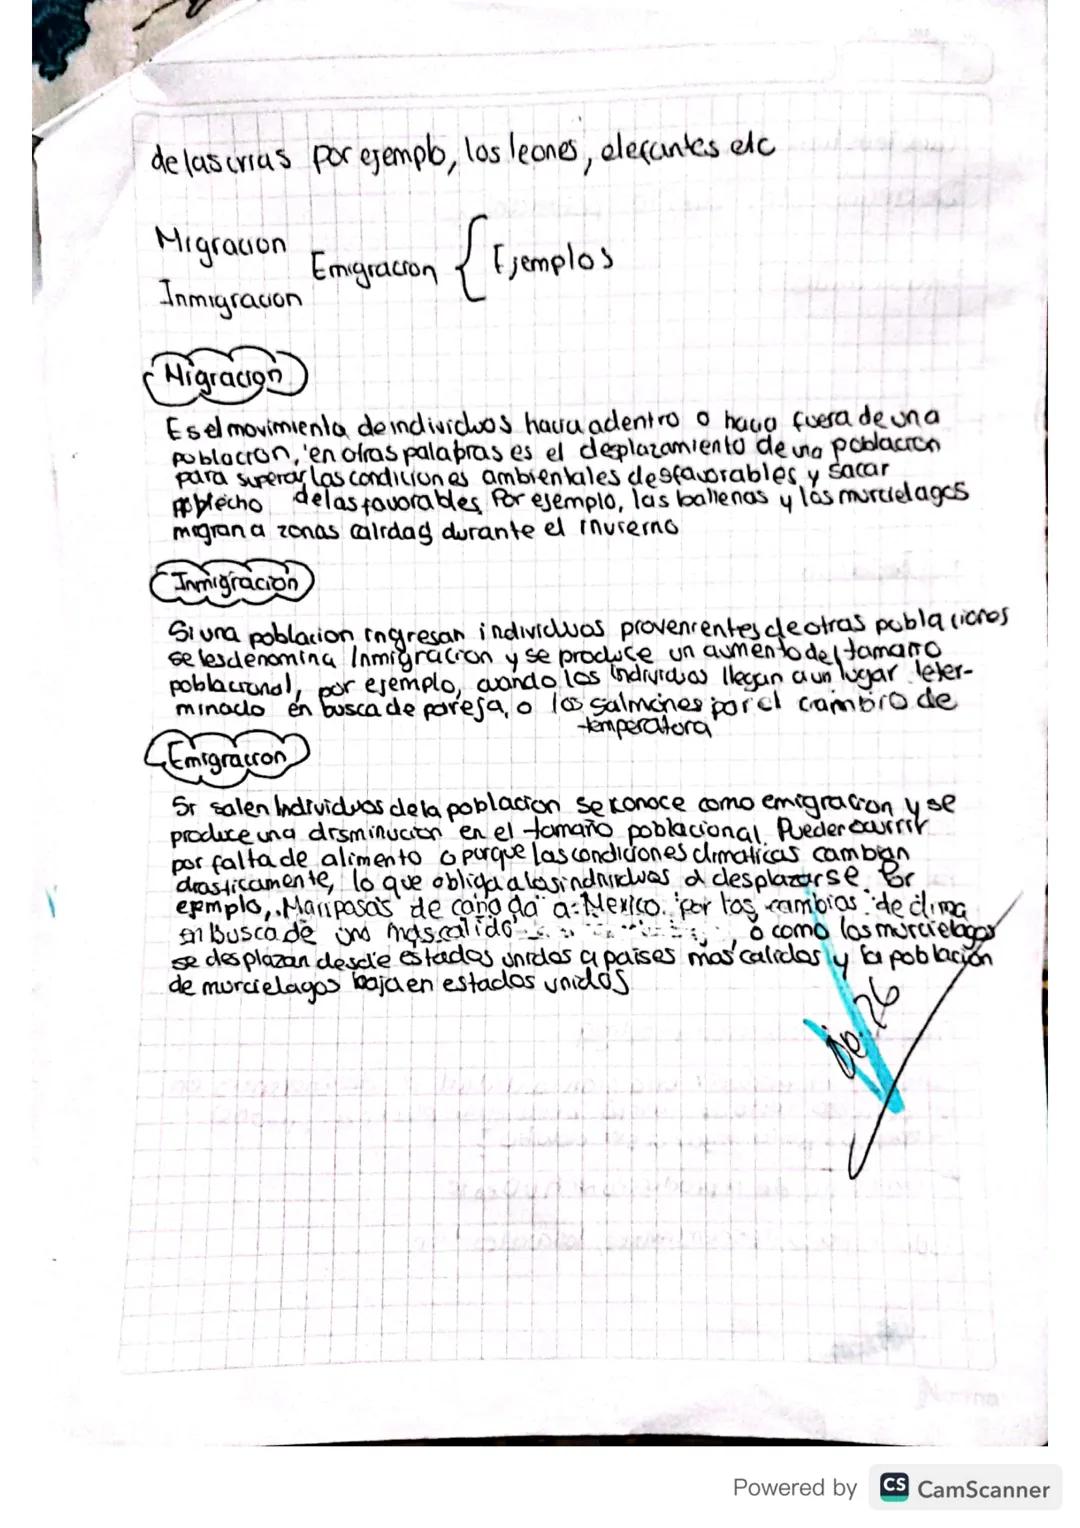 de las crias por ejemplo, los leones, elefantes etc
Migracion
Emigracion { Ejemplos
Inmigracion
Migracion
Es el movimiento de individuos hacia adentro o hacia fuera de una
poblacion, en otras palabras es el desplazamiento de una poblacion
para superar las condiciones ambientales desfavorables y sacar
de las favorables. Por ejemplo, las ballenas y los murcielagos
migran a zonas calidas durante el invierno
Inmigracion
Si una poblacion ingresan individuos provenientes de otras poblaciones
se les denomina Inmigracion y se produce un aumento del tamaño
poblacional, por ejemplo, cuando los individuos llegan a un lugar deter-
minado en busca de pareja, o los salmones por el cambio de
temperatura
Emigracion
Si salen Individuos de la poblacion se conoce como emigracion y se
produce una disminucion en el tamaño poblacional. Puede ocurrir
por falta de alimento o porque las condiciones climaticas cambian
drasticamente, lo que obliga a los individuos a desplazarse. Por
ejemplo, Mariposas de canada a Mexico por los cambios de clima
en busca de uno mas calido, o como los murcielagos
se desplazan desde estados unidos a paises mas calidos y la poblacion
de murcielagos baja en estados unidos
Powered by CS CamScanner